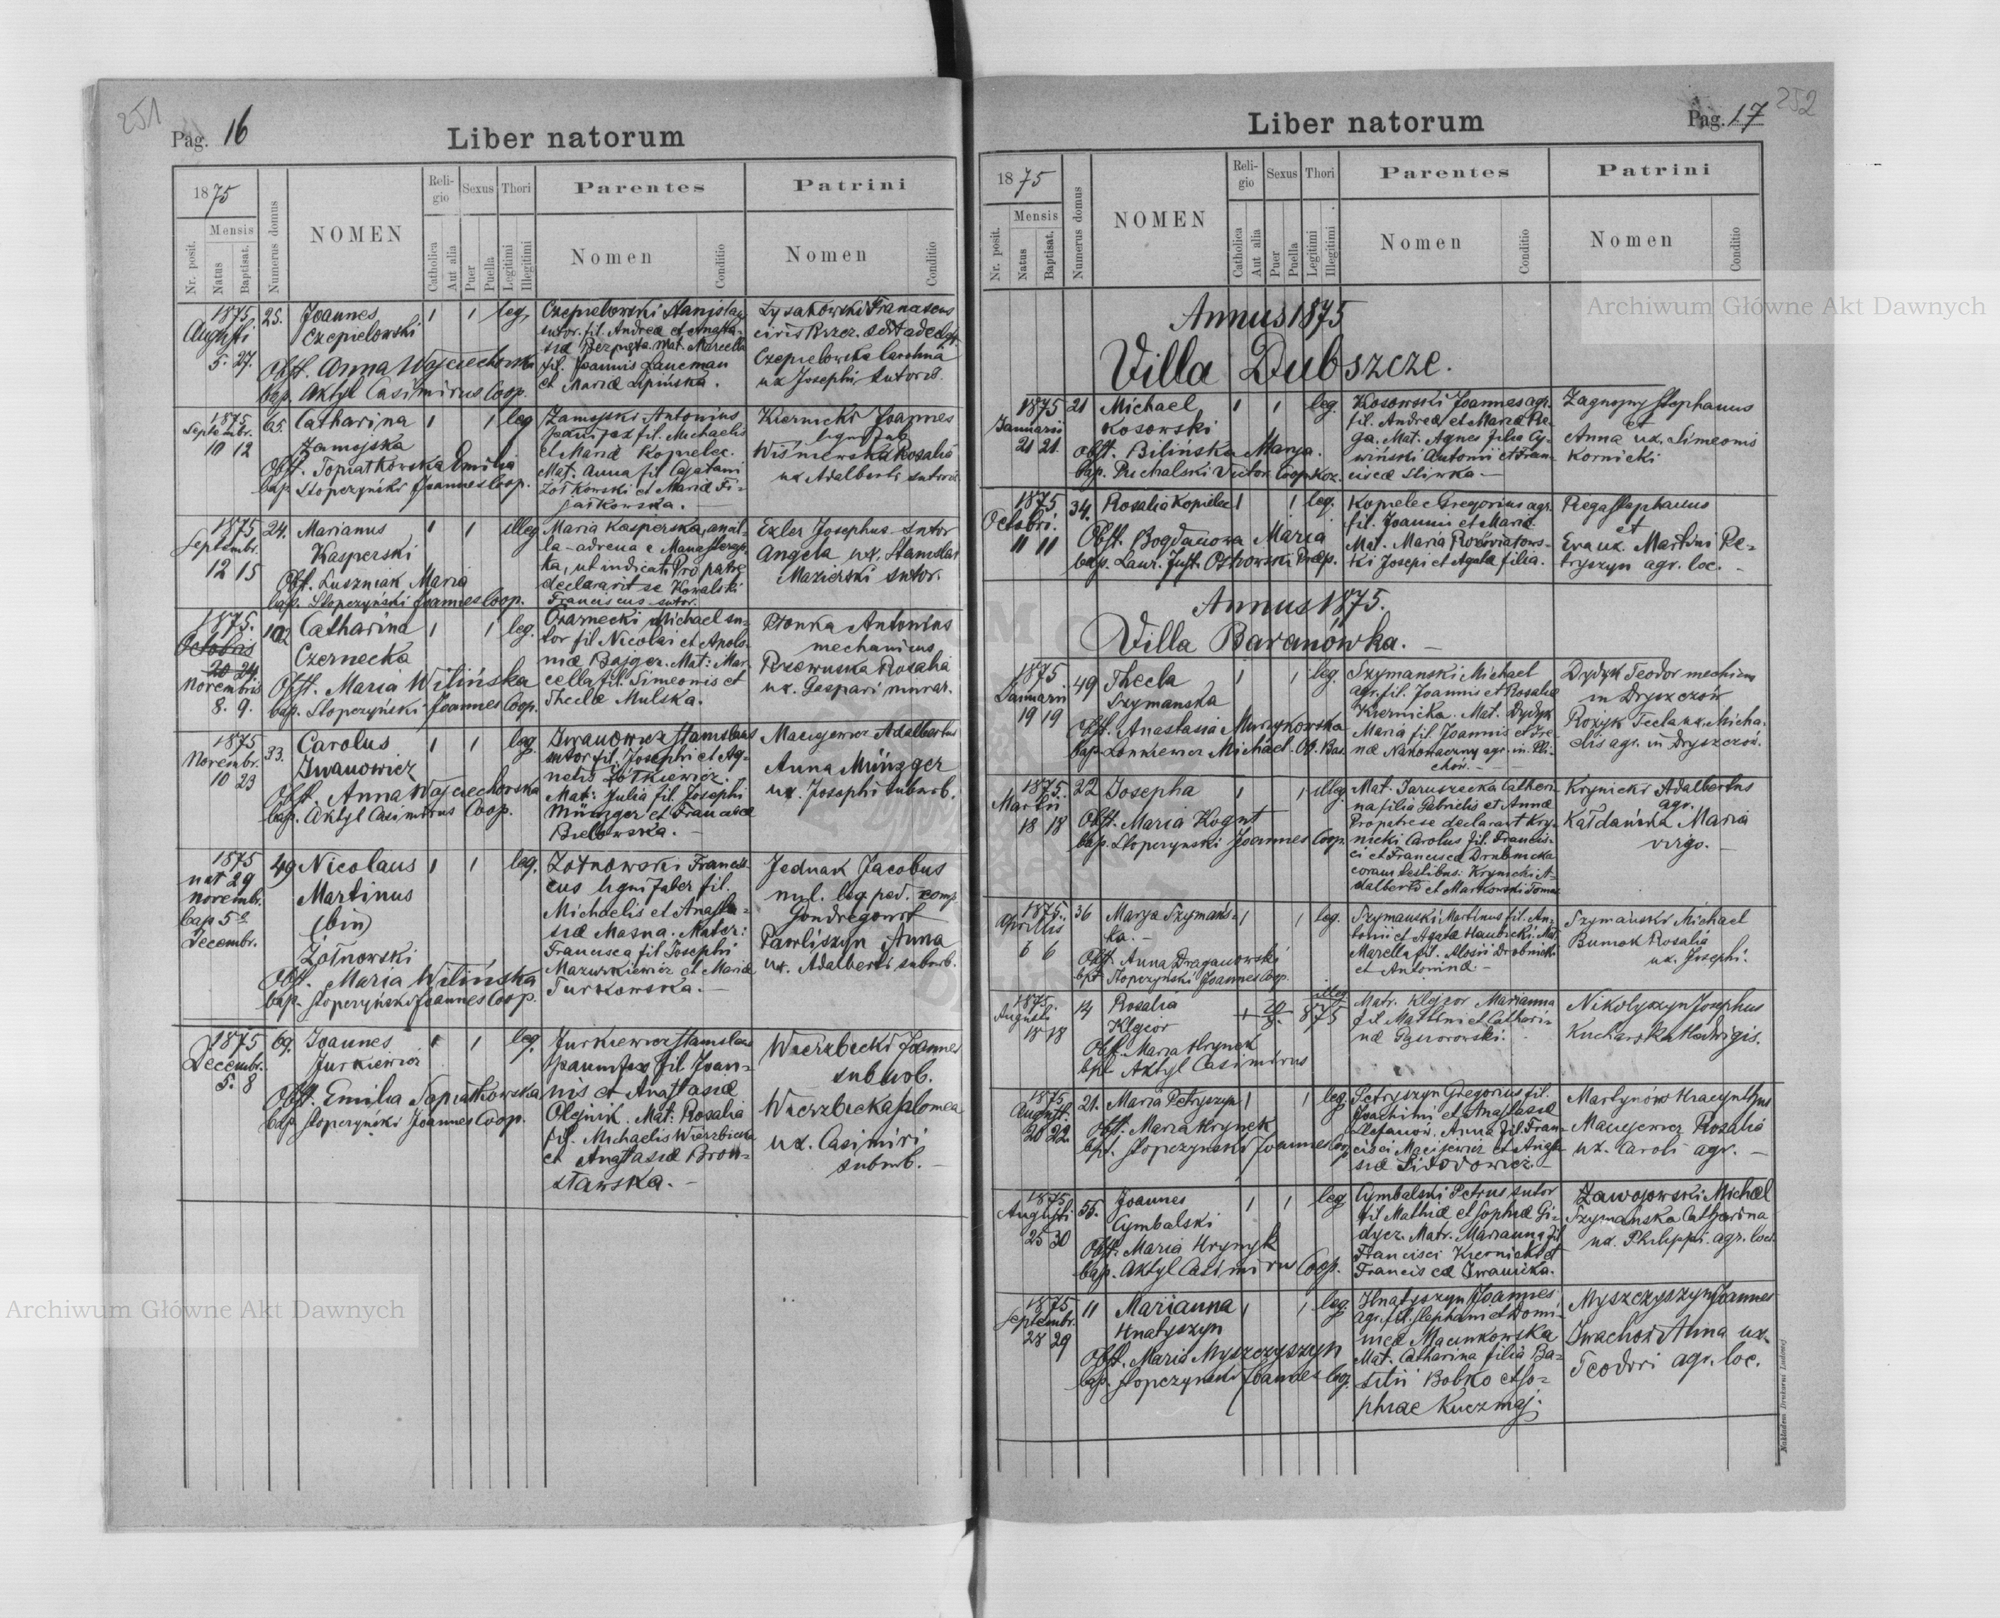 251
Pag. 16
Liber natorum
1875
Nr. posit.
Mensis
Natus
Baptisat.
Numerus domus
NOMEN
Religio
Catholica
Aut alia
Sexus
Puer
Puella
Thori
Legitimi
Illegitimi
Parentes
Nomen
Conditio
Patrini
Nomen
Conditio
1875
Augusti
5. 27.
25.
Joannes
Czepielowski
Obst. Anna Wojciechowska
bap. Aktyl Casimirus Coop.
1
1
leg.
Czepielowski Stanislaus
sutor. fil. Andreæ et Anasta-
siæ Mat. Marcella
fil. Joannis Laucman
et Mariæ Lipińska.
Czepielowska Carolina
ux Josephi sutoris.
1875
Septembr.
10 12
65.
Catharina
Zamojska
Obst. Topiatkowska Emilia
bap. Stopczyński Joannes Coop.
1
1
leg
Zamojski Antonius
fil. Michaelis
et Mariæ Kopielec.
Mat: Anna fil. Cajetani
Żółkowski et Mariæ Fi-
jałkowska.
Kiernicki Joannes
Wiśniewska Rosalia
ux Adalberti sutoris
1875
Septembr.
12 15
24.
Marianus
Kasperski
Obst. Łuszniak Maria
bap. Stopczyński Joannes Coop.
1
1
illeg
Maria Kasperska, ancil-
la
ut indicat. Pro patre
declaravit se Kowalski
Franciscus sutor.
Exler Josephus sutor
Angela ux. Stanislai
Mazierski sutor.
1875.
Octobris
20 24
Novembris
8. 9.
102
Catharina
Czernecka
Obst. Maria Wilińska
bap. Stopczyński Joannes Coop.
1
1
leg.
Michael su-
tor fil Nicolai et Apolo-
niæ Bajger. Mat: Mar-
cella fil. Simeonis et
Theclæ Mulska.
Płonka Antonius
mechanicus
Rosalia
ux. Gaspari murar.
1875
Novembr.
10 23
33.
Carolus
Iwanowicz
Obst. Anna Wojciechowska
bap. Aktyl Casimirus Coop.
1
1
leg.
Iwanowicz Stanislaus
sutor. fil. Josephi et Ag-
netis Żółkiewicz.
Mat: Julia fil. Josephi
Münzger et Franciscæ
Bielowska.
Maciejewicz Adalbertus
Anna Münzger
ux. Josephi suburb.
1875
nat 29
novembr.
bap 5º
Decembr.
49
Nicolaus
Martinus
(bin)
Żółnowski
Obst. Maria Wilińska
bap. Stopczyński Joannes Coop.
1
1
leg.
Żółnowski Francis-
cus lignifaber fil.
Michaelis et Anasta-
siæ Masna. Mater:
Francisca fil Josephi
Mazurkiewicz et Mariæ
Turkowska.
Jednak Jacobus
myl. leg. ped. comp.
Gondregourt
Pawliszyn Anna
ux. Adalberti suburb.
1875
Decembr.
5. 8
69.
Joannes
Jurkiewicz
Obst. Emilia Topiatkowska
bap. Stopczyński Joannes Coop.
1
1
leg.
Jurkiewicz Stanislaus
fil Joan-
nis et Anastasiæ
Olejnik. Mat: Rosalia
fil. Michaelis Wierzbicki
et Anastasiæ Broni-
sławska.
Wierzbicki Joannes
suburb.
Wierzbicka Salomea
ux. Casimiri
suburb.
252
Pag. 17
Liber natorum
1875
Nr. posit.
Mensis
Natus
Baptisat.
Numerus domus
NOMEN
Religio
Catholica
Aut alia
Sexus
Puer
Puella
Thori
Legitimi
Illegitimi
Parentes
Nomen
Conditio
Patrini
Nomen
Conditio
Annus 1875
Villa Dubszcze.
1875
Januarii
21 21.
21
Michael
Kosowski
Obst. Bilińska Marya.
bap. Puchalski Victor Coop.
1
1
leg.
Kosowski Joannes agr.
fil. Andreæ et Mariæ Re-
ga. Mat. Agnes filia Cy-
wiński Antonii et Fran-
ciscæ Sliwka.
Zagnojny Stephanus
et
Anna ux. Simeonis
Kornicki
1875
Octobri.
11 11
34.
Rosalia Kopielec
Obst. Bogdanowa Maria
bap. Laur. Just. Ostrowski Præp.
1
1
leg.
Kopielec Gregorius agr.
fil. Joannis et Mariæ
Mat. Maria
Josepi et Agata filia.
Rega Stephanus
et
Eva ux. Martini Pe-
tryszyn agr. loc.
Annus 1875.
Villa Baranówka.
1875
Januarii
19 19
49
Thecla
Szymanska
Obst. Anastasia Muszykowska
bap. Lonkiewicz Michael
1
1
leg.
Szymanski Michael
agr. fil. Joannis et Rosaliæ
Kiernicka. Mat. Dydyk
Maria fil. Joannis et Ire-
næ Nakonieczny agr. in Pli-
chów.
Dydyk Teodor
in Dryszczów
Rożyk Tecla ux. Micha-
elis agr. in Dryszczów.
1875.
Martii
18 18
22
Josepha
Obst. Maria Kogut
bap. Stopczyński Joannes Coop.
1
1
illeg.
Mat. Jaruszecka Catheri-
na filia Gabrielis et Annæ
Pro patre se declaravit Kry-
nicki Carolus fil. Francis-
ci et Francisca Drabnicka
coram testibus: Krynicki A-
dalberto et Markowski Toma
Krynicki Adalbertus
agr.
Kałdańska Maria
virgo.
1875.
Aprilis
6 6
36
Marya Szymańs-
ka.
Obst. Anna Draganowski
bpt Stopczyński Joannes Coop.
1
1
leg.
Szymanski Martinus fil. An-
tonii et Agatæ Mat.
Marella fil. Aloisii Drabnicki
et Antoninæ.
Szymański Michael
Bumok Rosalia
ux. Josephi.
1875.
Augusti
18 18
14
Rosalia
Klejzor
Obst. Maria Hrynek
bpt Aktyl Casimirus
illeg
Matr. Klejzor Marianna
fil. Martini et Catheri-
næ
Nikolyszyn Josephus
Kucharska Hedvigis.
1875
Augusti.
20 22
21.
Maria Petryszyn
Obst. Maria Hrynek
bpt. Stopczyński Joannes Coop.
1
1
leg.
Petryszyn Gregorius fil.
Joachimi et Anastasiæ
Stefanów. Anna fil. Fran-
cisci Maciejewicz et Anasta-
siæ
Martynów Hyacynthus
Maciejewicz Rosalia
ux. Caroli agr.
1875
Augusti
25 30
55.
Joannes
Cymbalski
Obst. Maria Hrynyk
bap. Aktyl Casimirus Coop.
1
1
leg
Cymbalski Petrus sutor
fil Mathiæ et Sophiæ Gi-
dycz. Matr. Marianna fil
Francisci Kiernicki et
Franciscæ Iwanicka.
Zawojowski Michael
Szymańska Catharina
ux. Philippi agr. loci
1875
Septembr.
28 29
11
Marianna
Hnatyszyn
Obst. Maria Myszczyszyn
bap. Stopczyński Joannes Coop.
1
1
leg.
Hnatyszyn Joannes,
agr. fil. Stephani et Domi-
nicæ Macunkowska
Mat. Catharina filia Ba-
silii Bobko et So-
phiae Kuczmaj.
Myszczyszyn Joannes
Iwachów Anna ux.
Teodori agr. loc.
Nakładem Drukarni Ludowej
Archiwum Główne Akt Dawnych
Archiwum Główne Akt Dawnych